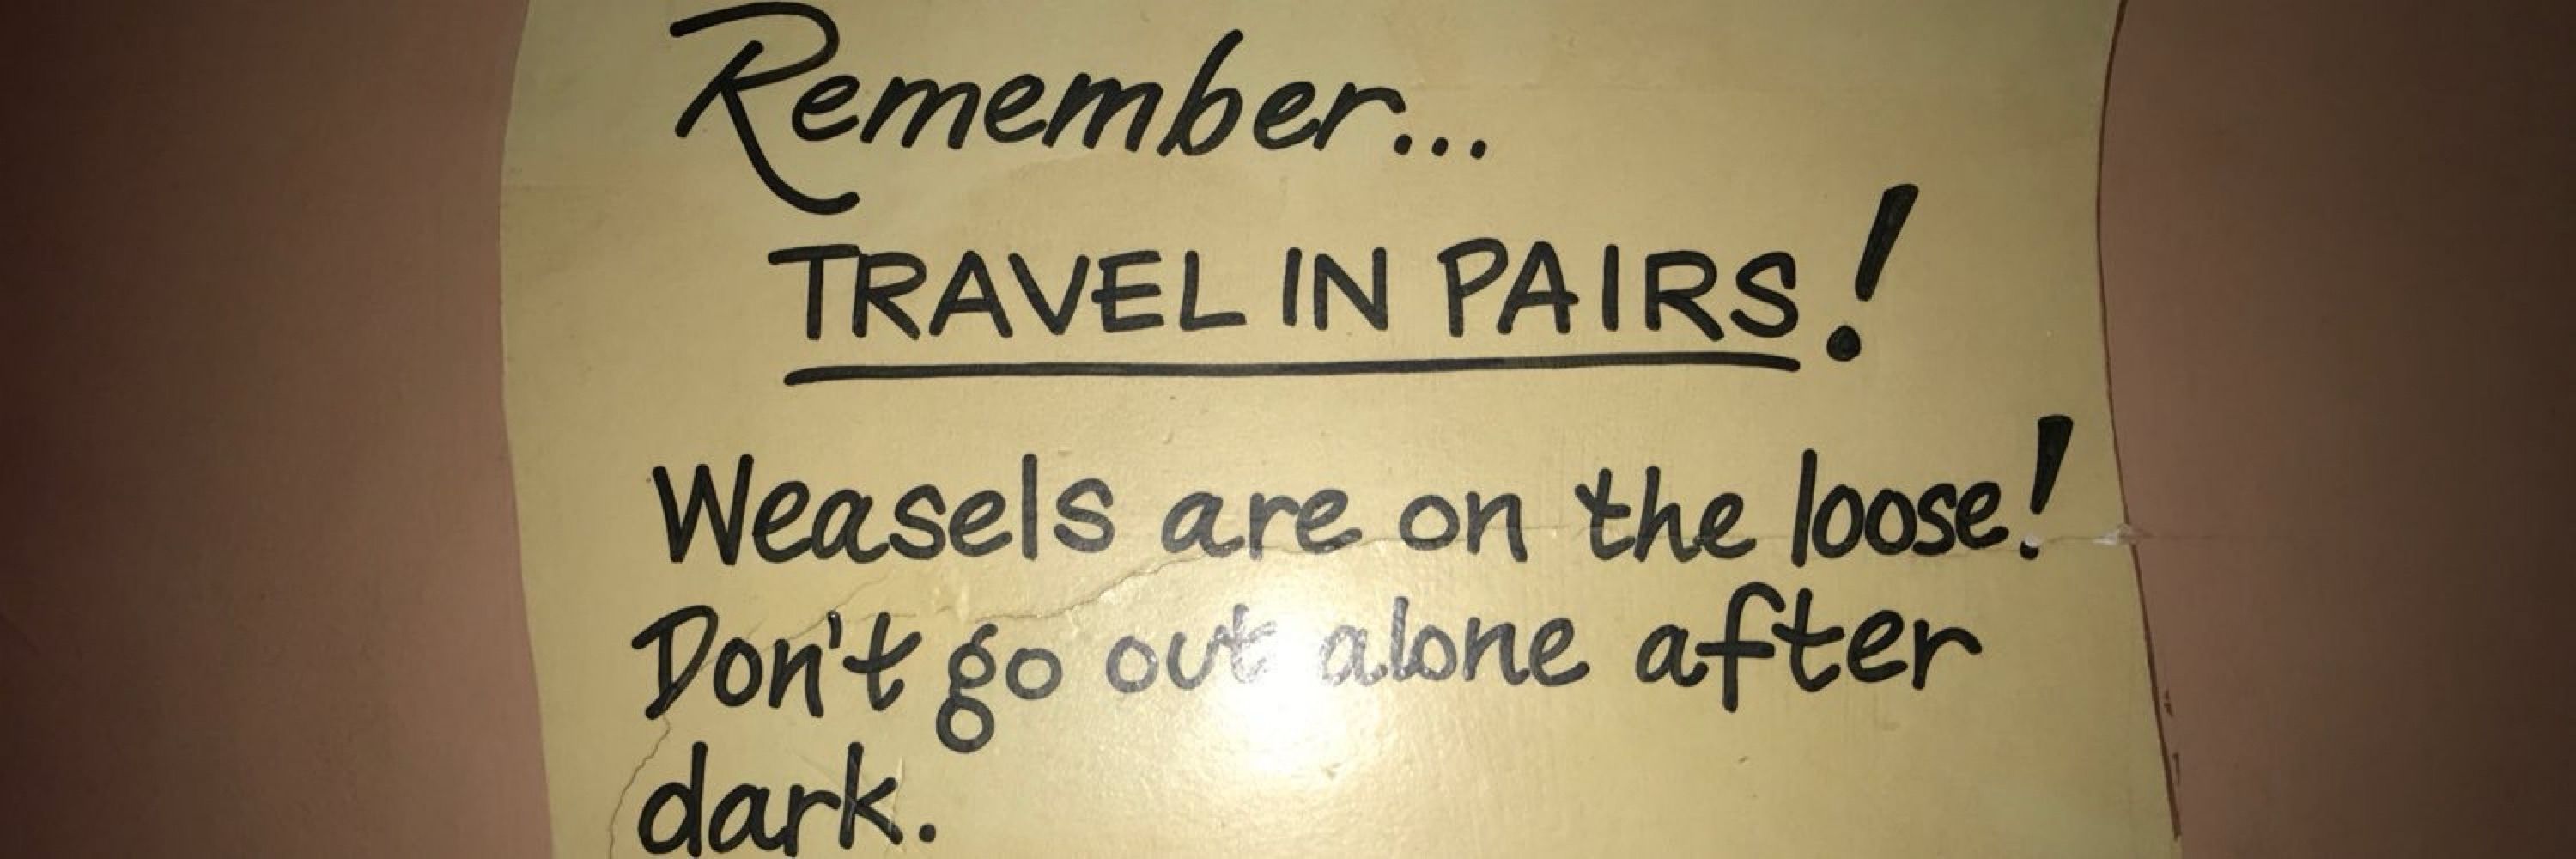 Remember...
TRAVEL IN PAIRS!
Weasels are on the loose!
Don't go out alone after
dark.